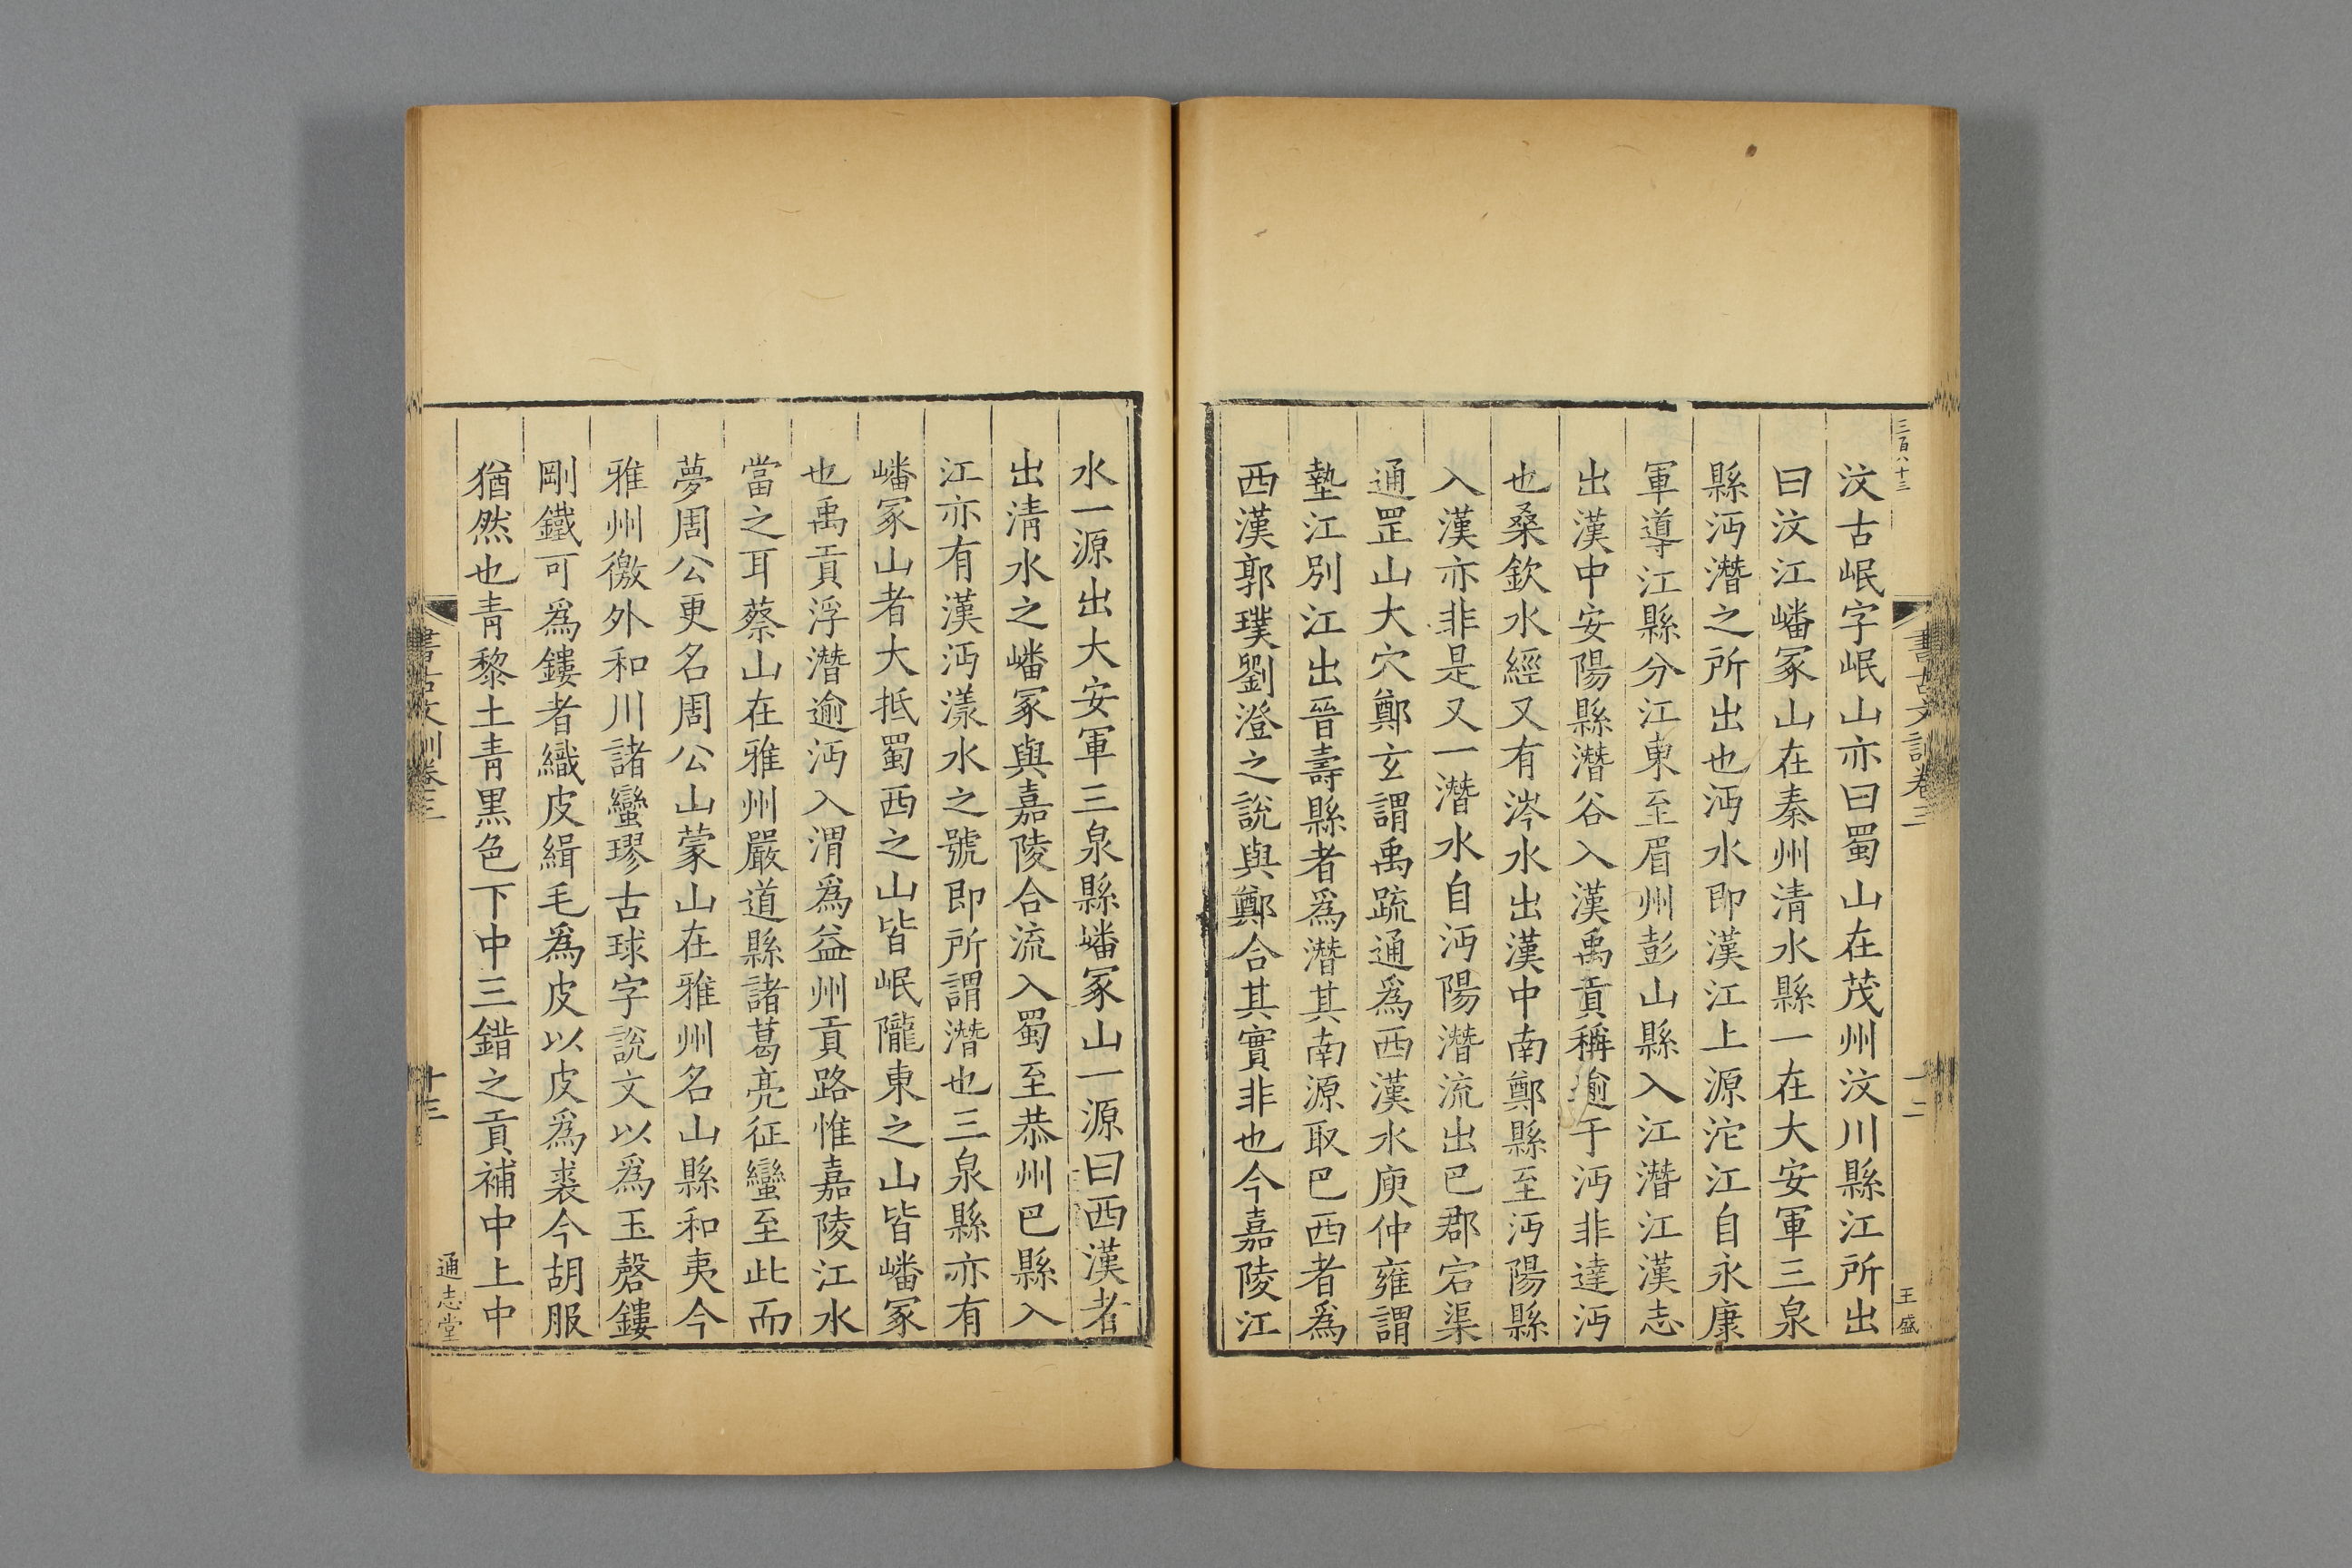 三百八十三
書古文訓卷三
十二
王盛
汶古岷字岷山亦曰蜀山在茂州汶川縣江所出
曰汶江嶓冢山在秦州清水縣一在大安軍三泉
縣沔潛之所出也沔水即漢江上源沱江自永康
軍導江縣分江東至眉州彭山縣入江潛江漢志
出漢中安陽縣潛谷入漢禹貢稱逾于沔非達沔
也桑欽水經又有涔水出漢中南鄭縣至沔陽縣
入漢亦非是又一潛水自沔陽潛流出巴郡宕渠
通罡山大穴鄭玄謂禹疏通為西漢水庾仲雍謂
墊江別江出晉壽縣者為潛其南源取巴西者為
西漢郭璞劉澄之說與鄭合其實非也今嘉陵江
水一源出大安軍三泉縣嶓冢山一源曰西漢者
出清水之嶓冢與嘉陵合流入蜀至恭州巴縣入
江亦有漢沔漾水之號即所謂潛也三泉縣亦有
嶓冢山者大抵蜀西之山皆岷隴東之山皆嶓冢
也禹貢浮潛逾沔入渭為益州貢路惟嘉陵江水
當之耳蔡山在雅州嚴道縣諸葛亮征蠻至此而
夢周公更名周公山蒙山在雅州名山縣和夷今
雅州徼外和川諸蠻璆古球字說文以為玉磬鏤
剛鐵可為鏤者織皮緝毛為皮以皮為裘今胡服
猶然也青黎土青黑色下中三錯之貢補中上中
書古文訓卷三
十三
通志堂